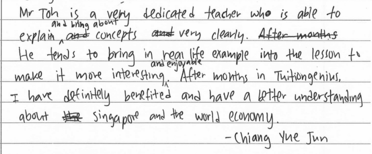 Mr Toh is a very dedicated teacher who is able to
and bring about
explain and concepts and very clearly. After months
He tends to bring in real life example into the lesson to
and enjoyable
make it more interesting. After months in Tuitiongenius,
I have definitely benefited and have a better understanding
about singapore and the world economy.
- Chiang Yue Jun